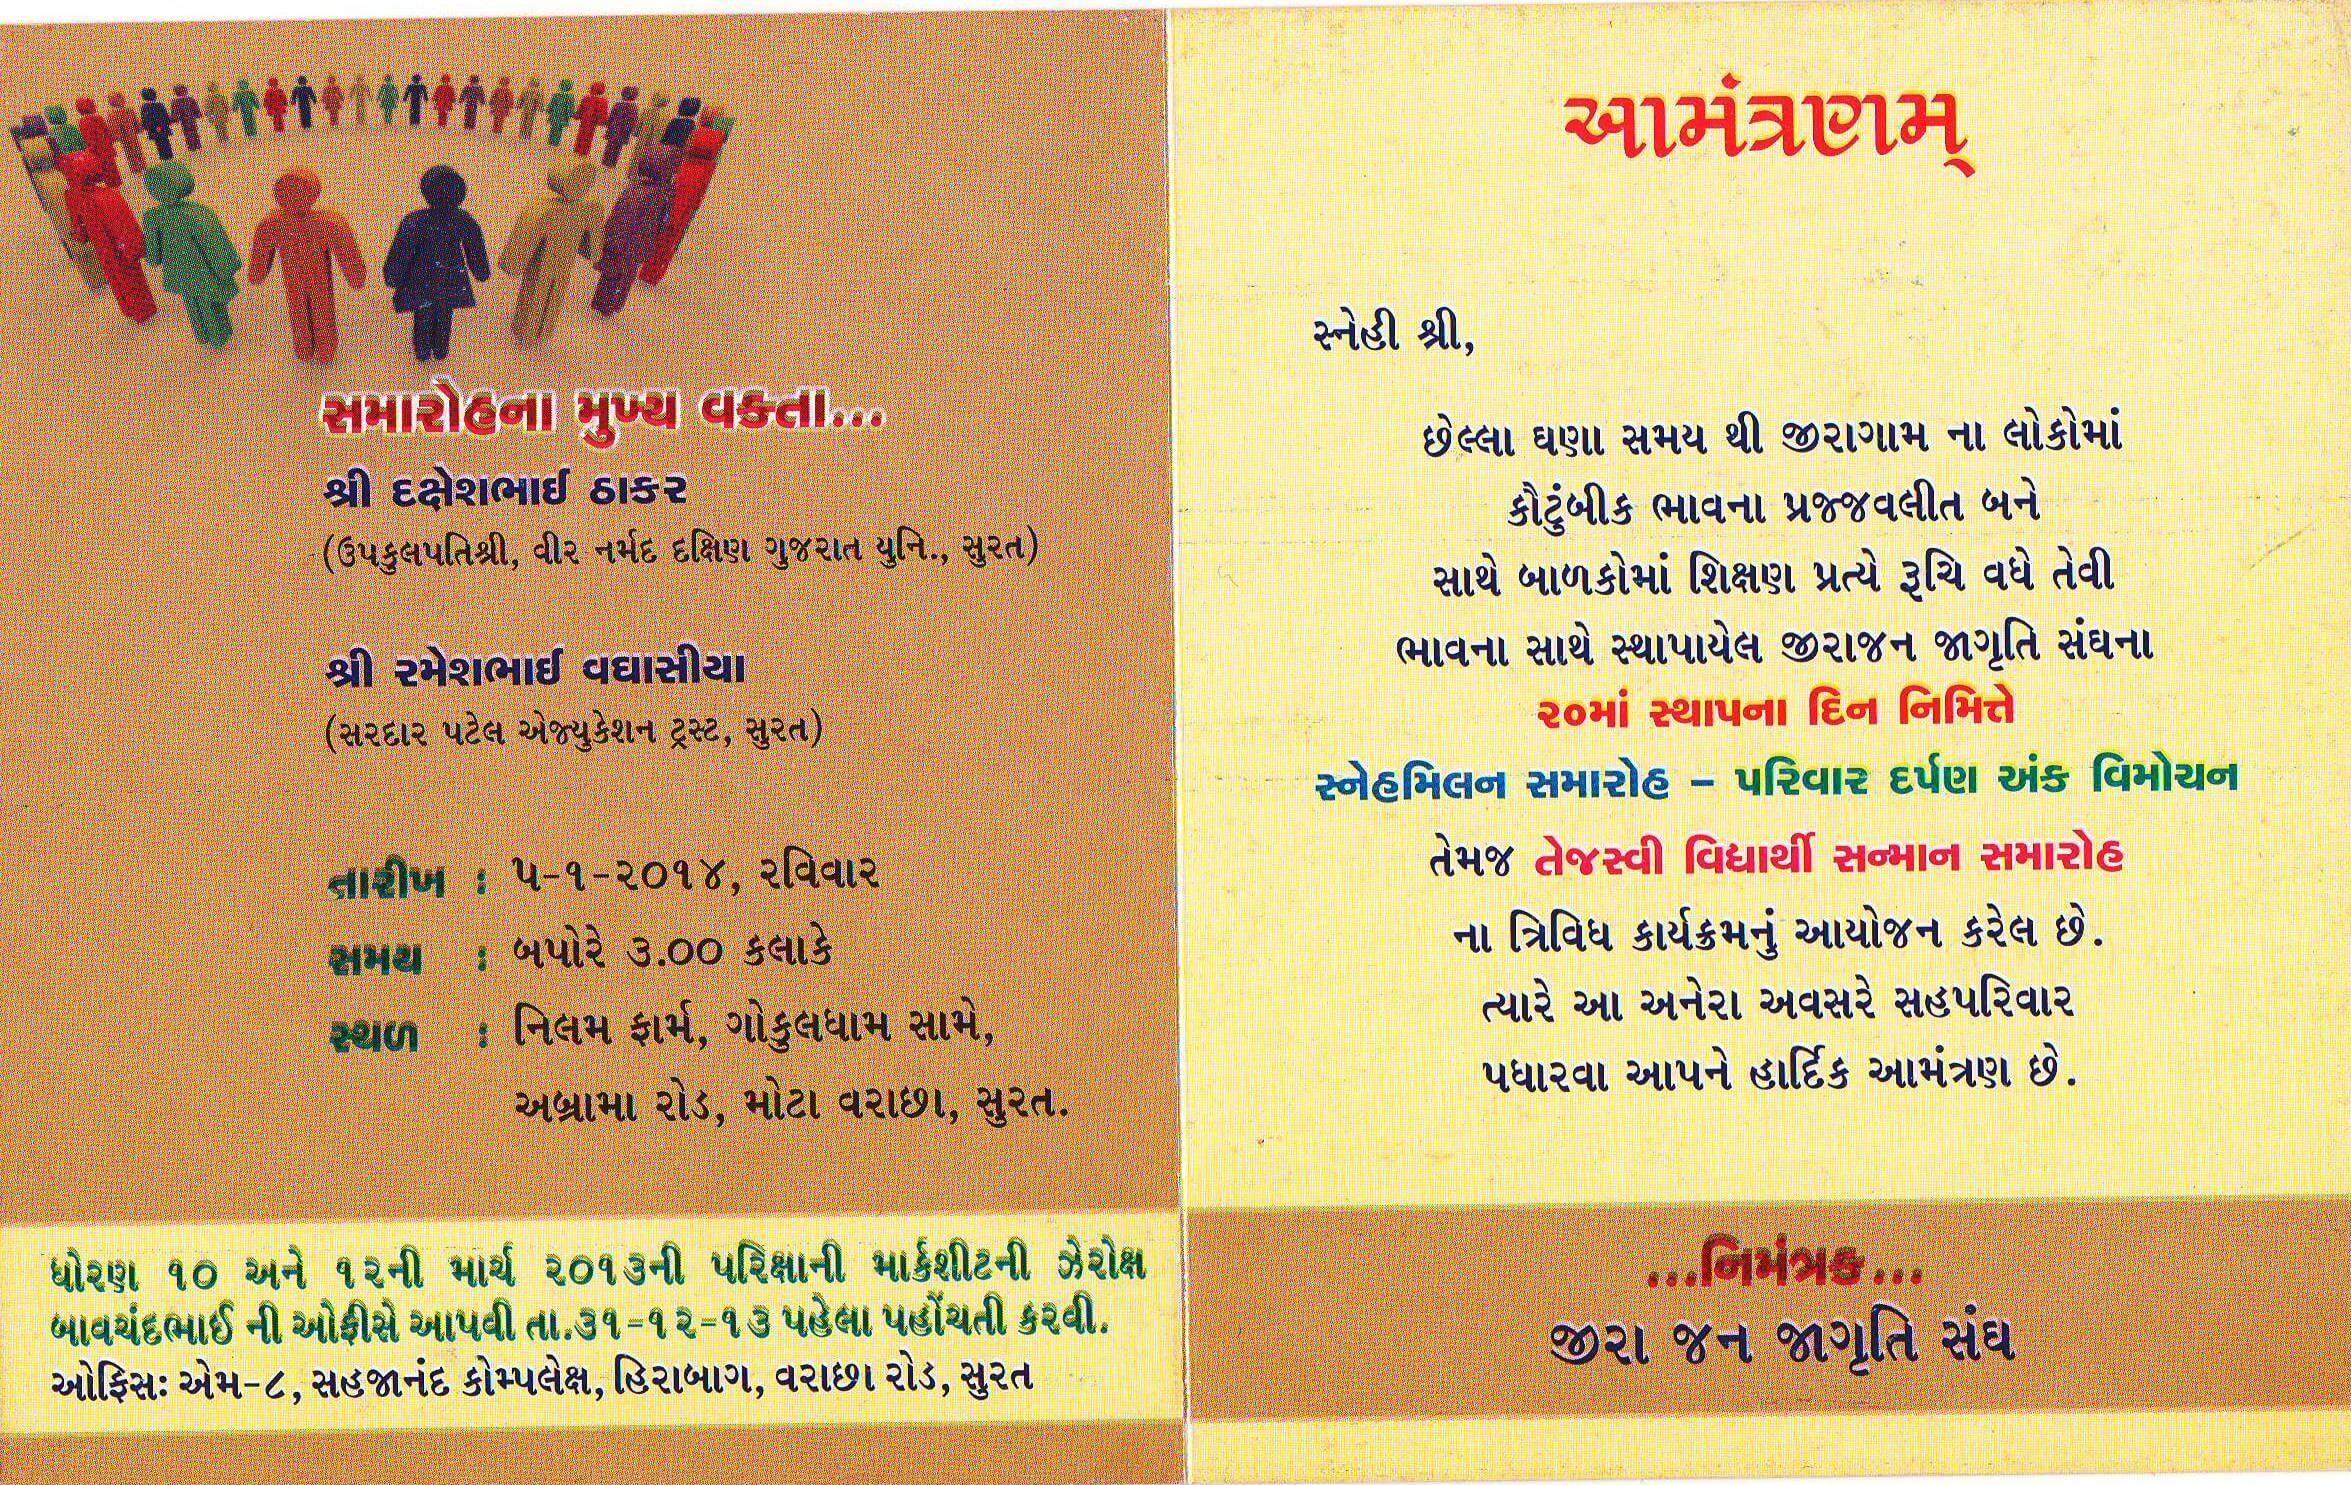 સમારોહના મુખ્ય વક્તા...
શ્રી દક્ષેશભાઈ ઠાકર
(ઉપકુલપતિશ્રી, વીર નર્મદ દક્ષિણ ગુજરાત યુનિ., સુરત)
શ્રી રમેશભાઈ વઘાસીયા
(સરદાર પટેલ એજ્યુકેશન ટ્રસ્ટ, સુરત)
તારીખ : ૫-૧-૨૦૧૪, રવિવાર
સમય : બપોરે ૩.૦૦ કલાકે
સ્થળ : નિલમ ફાર્મ, ગોકુલધામ સામે,
અબ્રામા રોડ, મોટા વરાછા, સુરત.
ધોરણ ૧૦ અને ૧૨ની માર્ચ ૨૦૧૩ની પરિક્ષાની માર્કશીટની ઝેરોક્ષ
બાવચંદભાઈ ની ઓફીસે આપવી તા.૩૧-૧૨-૧૩ પહેલા પહોંચતી કરવી.
ઓફિસઃ એમ-૮, સહજાનંદ કોમ્પલેક્ષ, હિરાબાગ, વરાછા રોડ, સુરત
આમંત્રણમ્
સ્નેહી શ્રી,
છેલ્લા ઘણા સમય થી જીરાગામ ના લોકોમાં
કૌટુંબીક ભાવના પ્રજ્જવલીત બને
સાથે બાળકોમાં શિક્ષણ પ્રત્યે રૂચિ વધે તેવી
ભાવના સાથે સ્થાપાયેલ જીરાજન જાગૃતિ સંઘના
૨૦માં સ્થાપના દિન નિમિત્તે
સ્નેહમિલન સમારોહ – પરિવાર દર્પણ અંક વિમોચન
તેમજ તેજસ્વી વિદ્યાર્થી સન્માન સમારોહ
ના ત્રિવિધ કાર્યક્રમનું આયોજન કરેલ છે.
ત્યારે આ અનેરા અવસરે સહપરિવાર
પધારવા આપને હાર્દિક આમંત્રણ છે.
...નિમંત્રક...
જીરા જન જાગૃતિ સંઘ